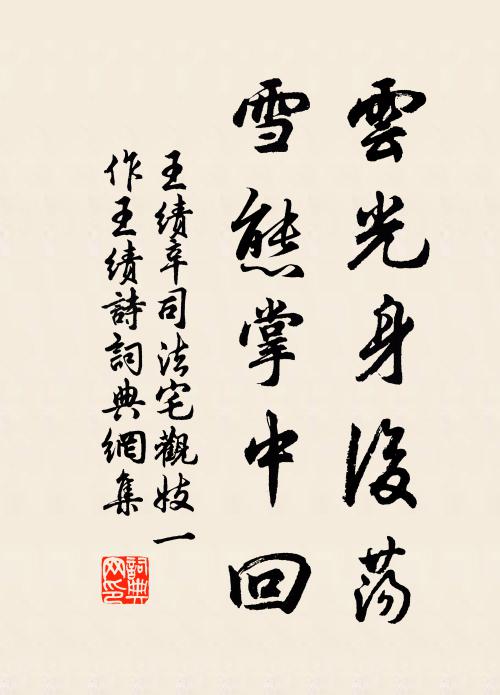 雲光身後蕩
雪態掌中回
王績辛司法宅觀妓一
作王績詩詞典網集
詞典
网印